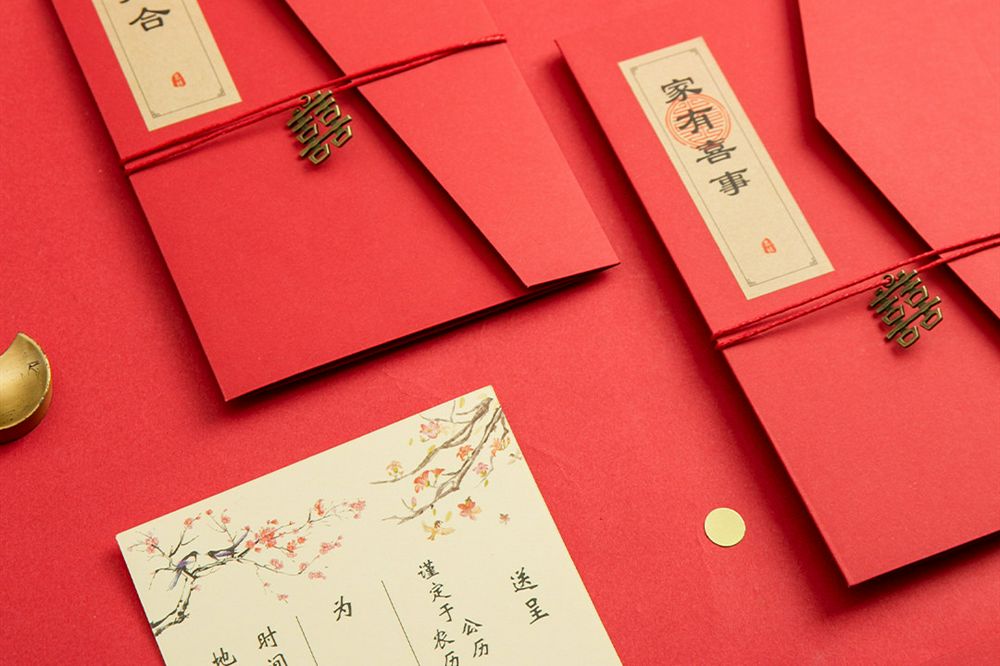 合
家有喜事
囍
囍
送呈
谨定于
公历
农历
为
时间
地